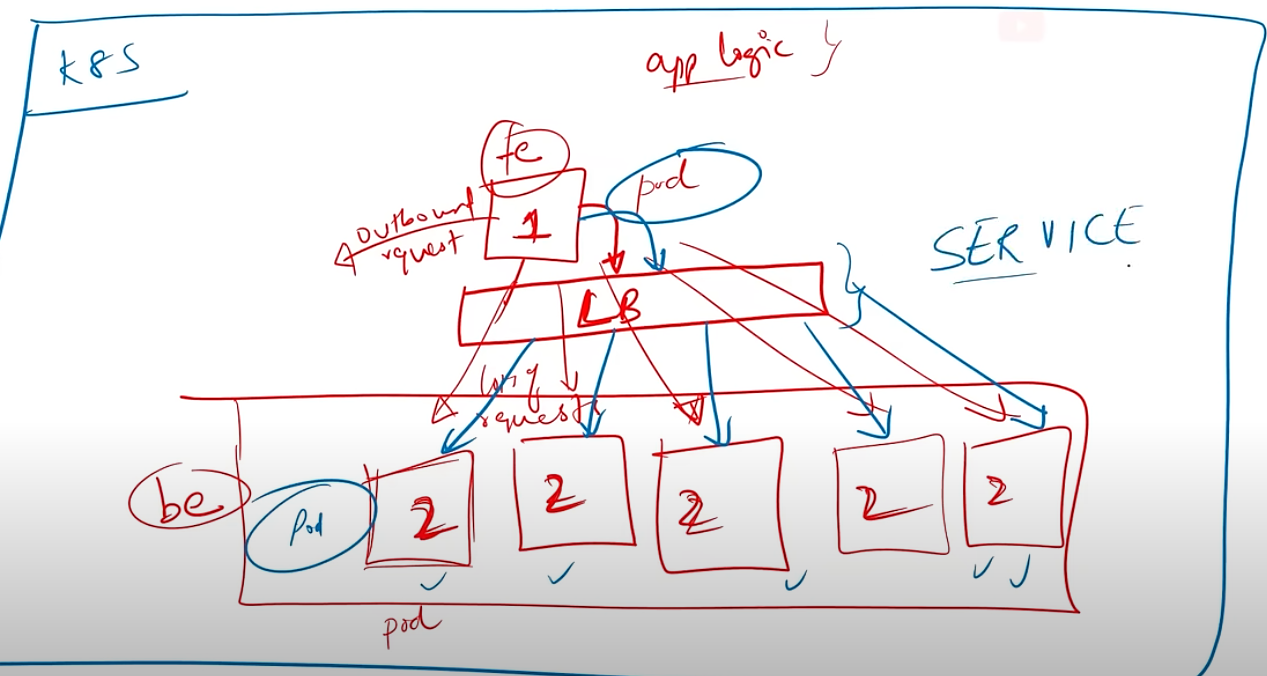 K8S
app logic }
fe
pod
outbound
request
1
SERVICE
LB
requests
be
Pod
2
2
2
2
2
pod